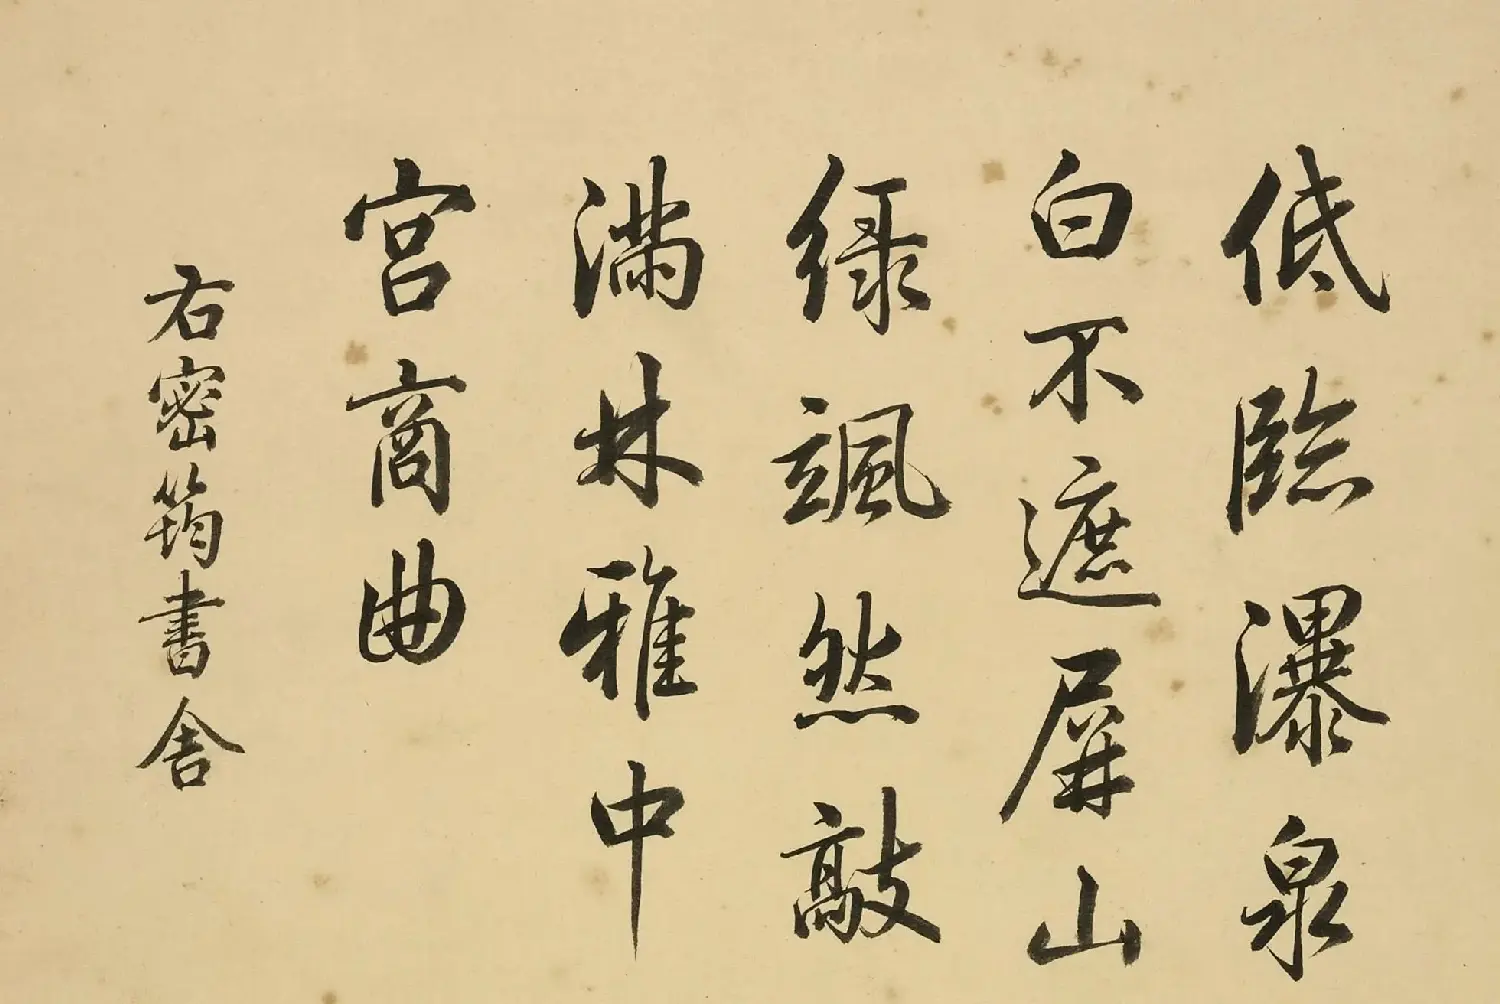 低臨瀑泉
白不遮屏山
緑颯然敲
満林雅中
宮商曲
右密筠書舎